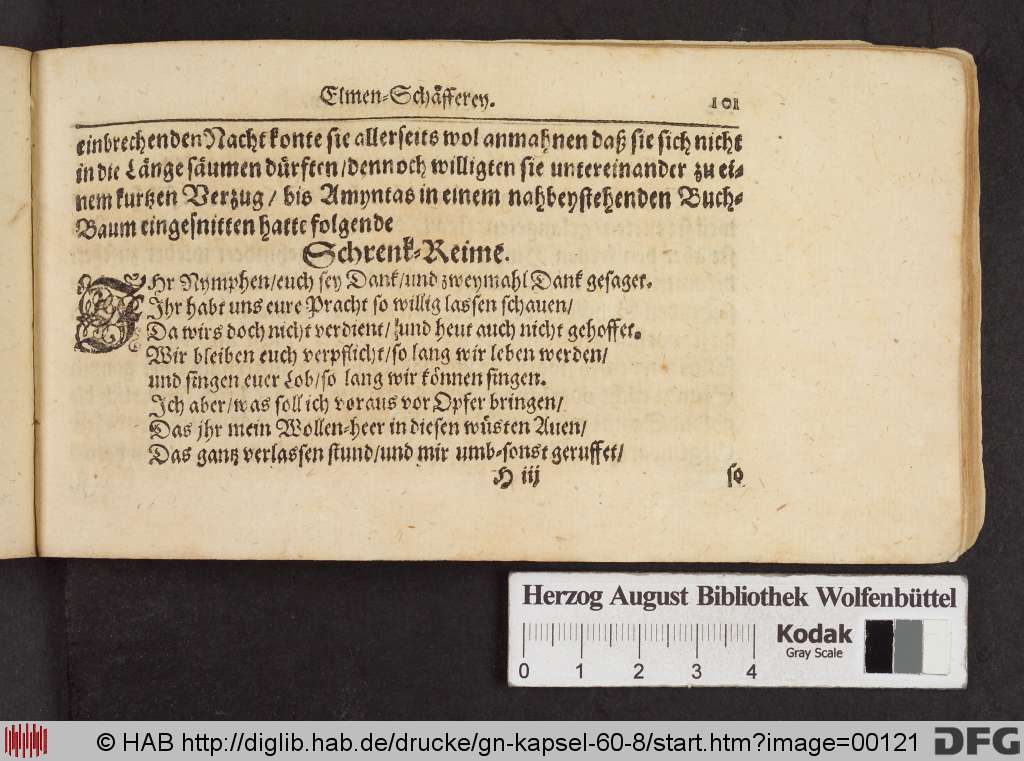 Elmen-Schäfferey. 101
einbrechenden Nacht konte sie allerseits wol anmahnen daß sie sich nicht
in die Länge säumen dürften/ dennoch willigten sie untereinander zu ei-
nem kurtzen Verzug/ bis Amyntas in einem nahbeystehenden Buch-
Baum eingesnitten hatte folgende
Schrenk-Reime.
IHr Nymphen/ euch sey Dank/ und zweymahl Dank gesaget.
Ihr habt uns eure Pracht so willig lassen schauen/
Da wirs doch nicht verdient/ und heut auch nicht gehoffet.
Wir bleiben euch verpflicht/ so lang wir leben werden/
und singen euer Lob/ so lang wir können singen.
Ich aber/ was soll ich voraus vor Opfer bringen/
Das jhr mein Wollen-heer in diesen wüsten Auen/
Das gantz verlassen stund/ und mir umb-sonst geruffet/
H iij so
Herzog August Bibliothek Wolfenbüttel
Kodak
Gray Scale
0 1 2 3 4
© HAB http://diglib.hab.de/drucke/gn-kapsel-60-8/start.htm?image=00121 DFG